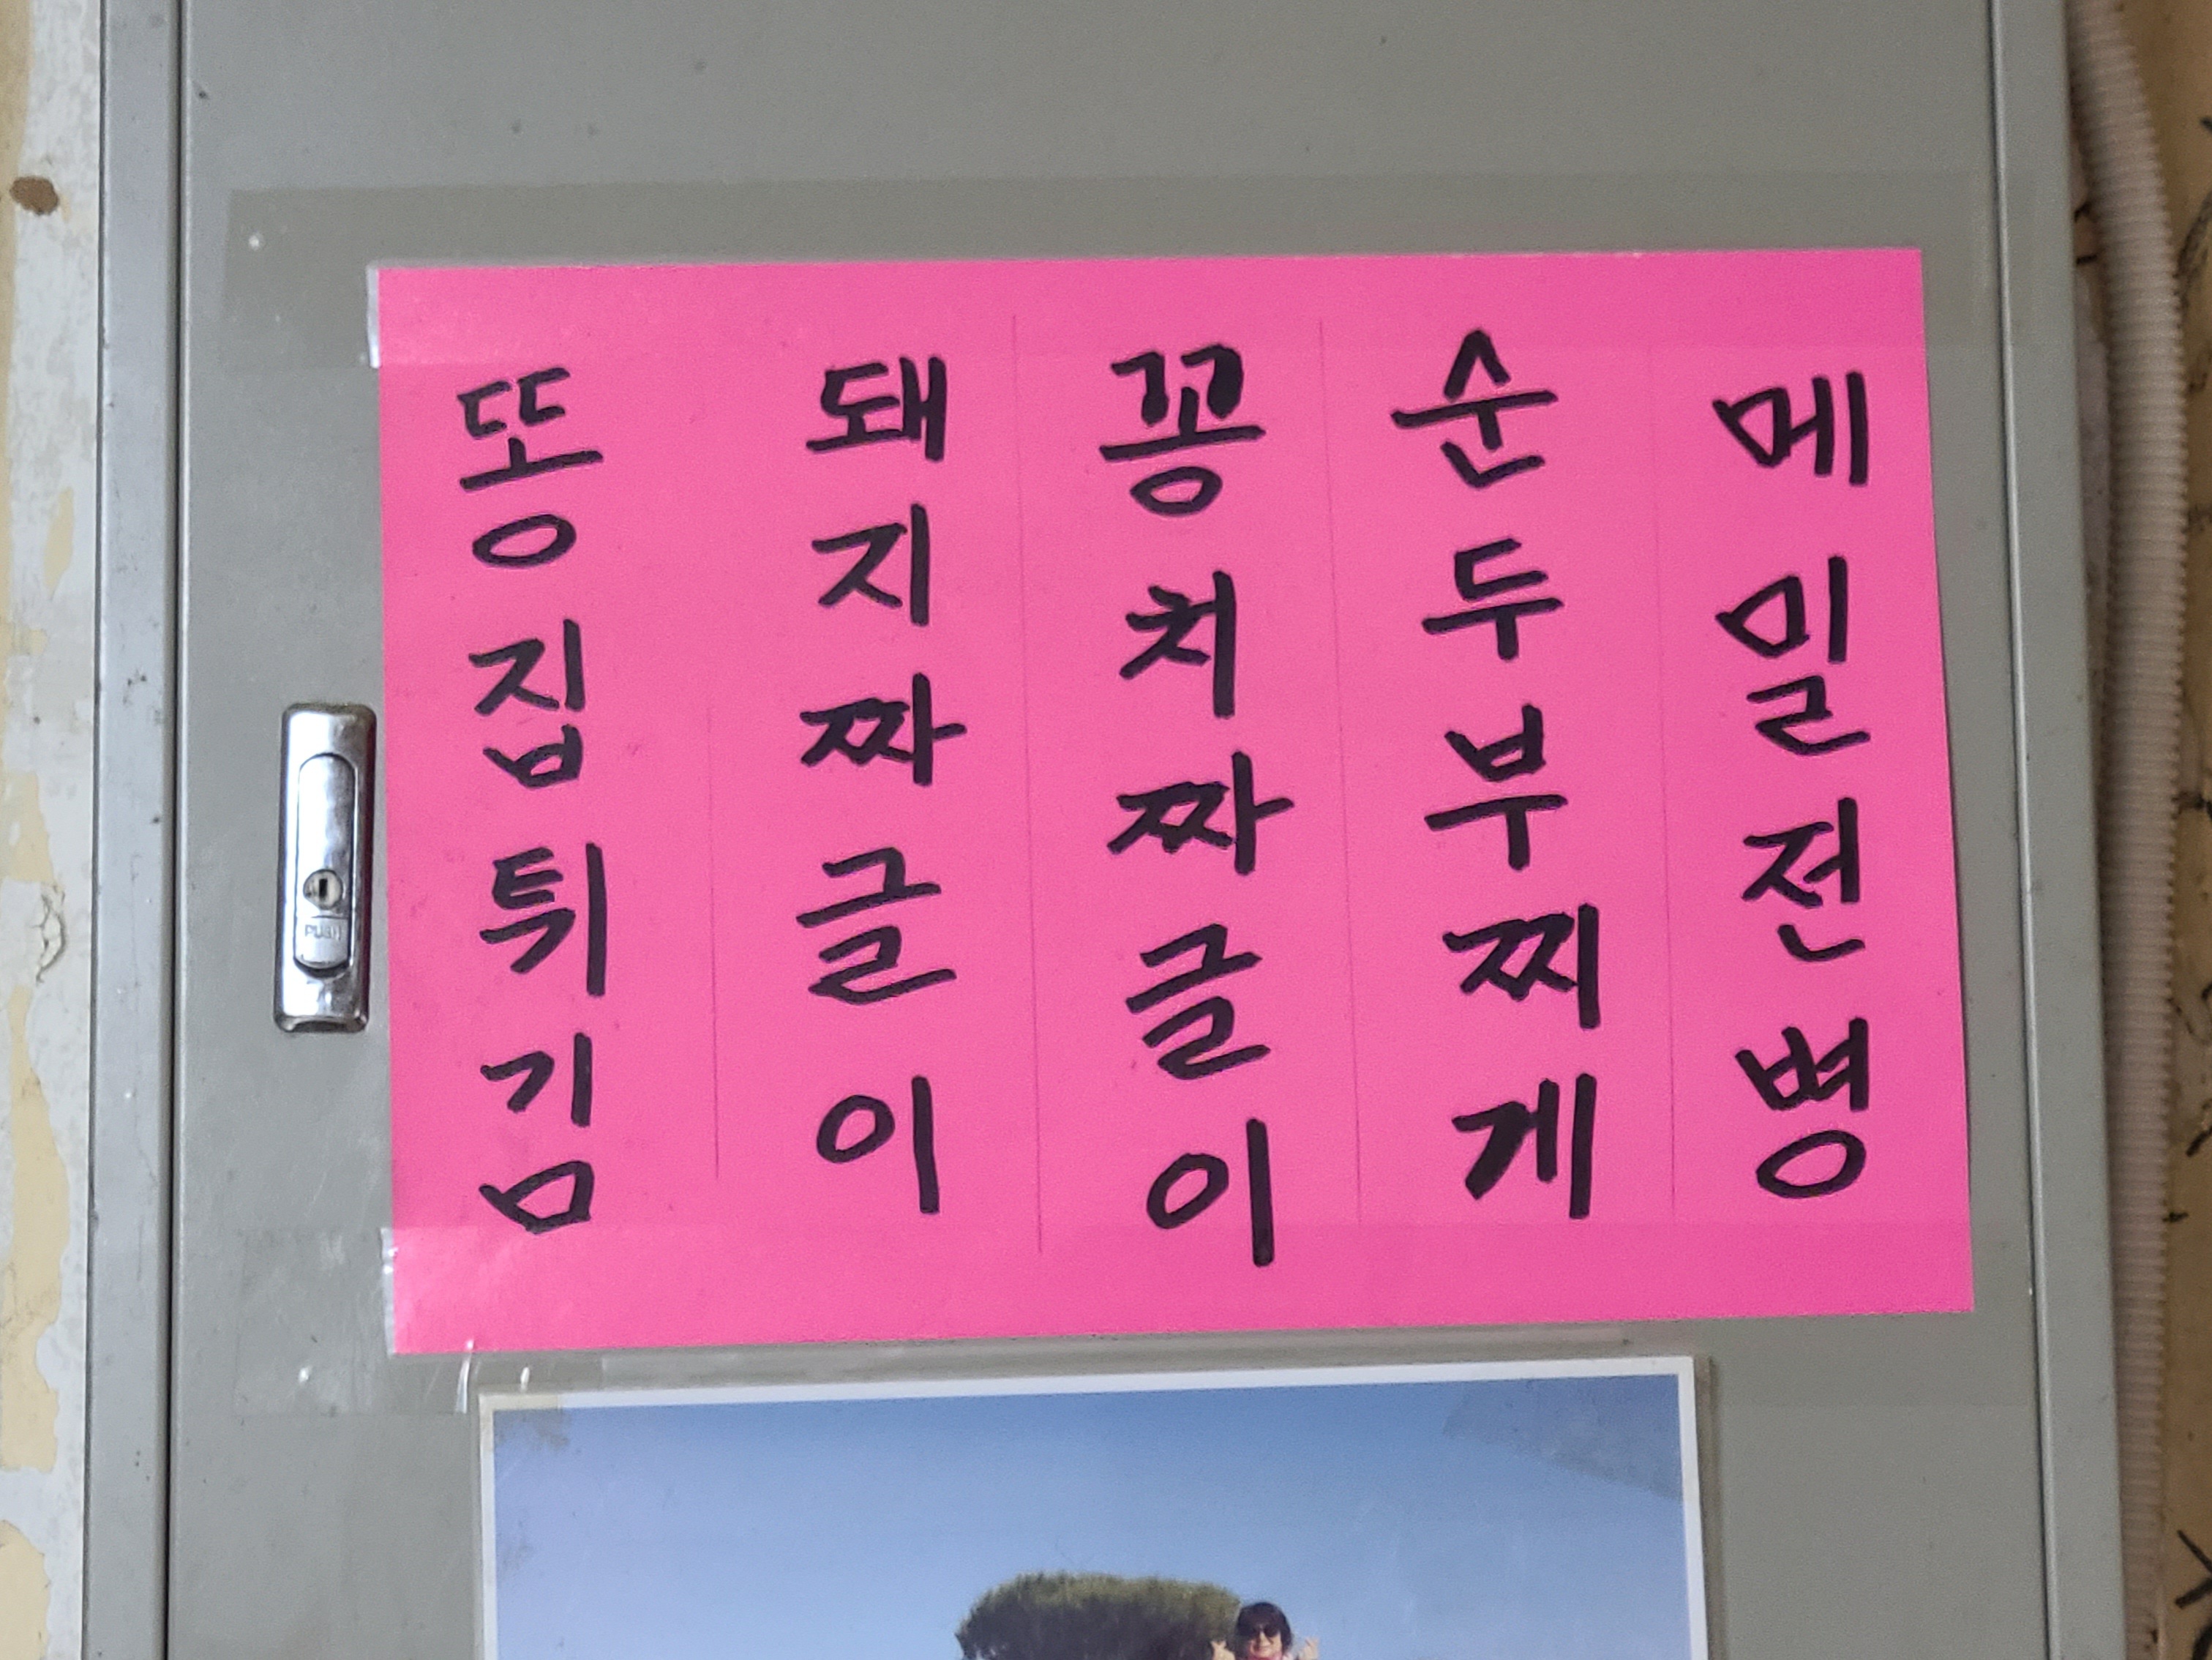 똥집튀김
돼지짜글이
꽁처짜글이
순두부찌게
메밀전병
PUSH